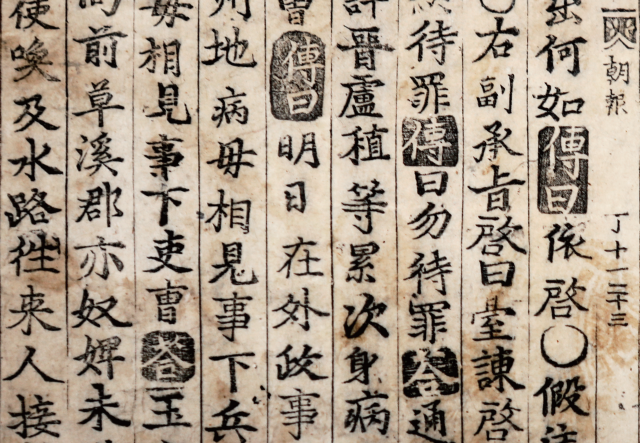 朝報 丁十一卄三
出何如傳曰依啓〇假注
〇右副承旨啓曰臺諫啓
待罪傳曰勿待罪答通
許晋盧稙等累次身病
曹傳曰明日在外政事
州地病母相見事下兵
母相見事下吏曹答玉
向前草溪郡亦奴婢未
使喚及水路往来人接